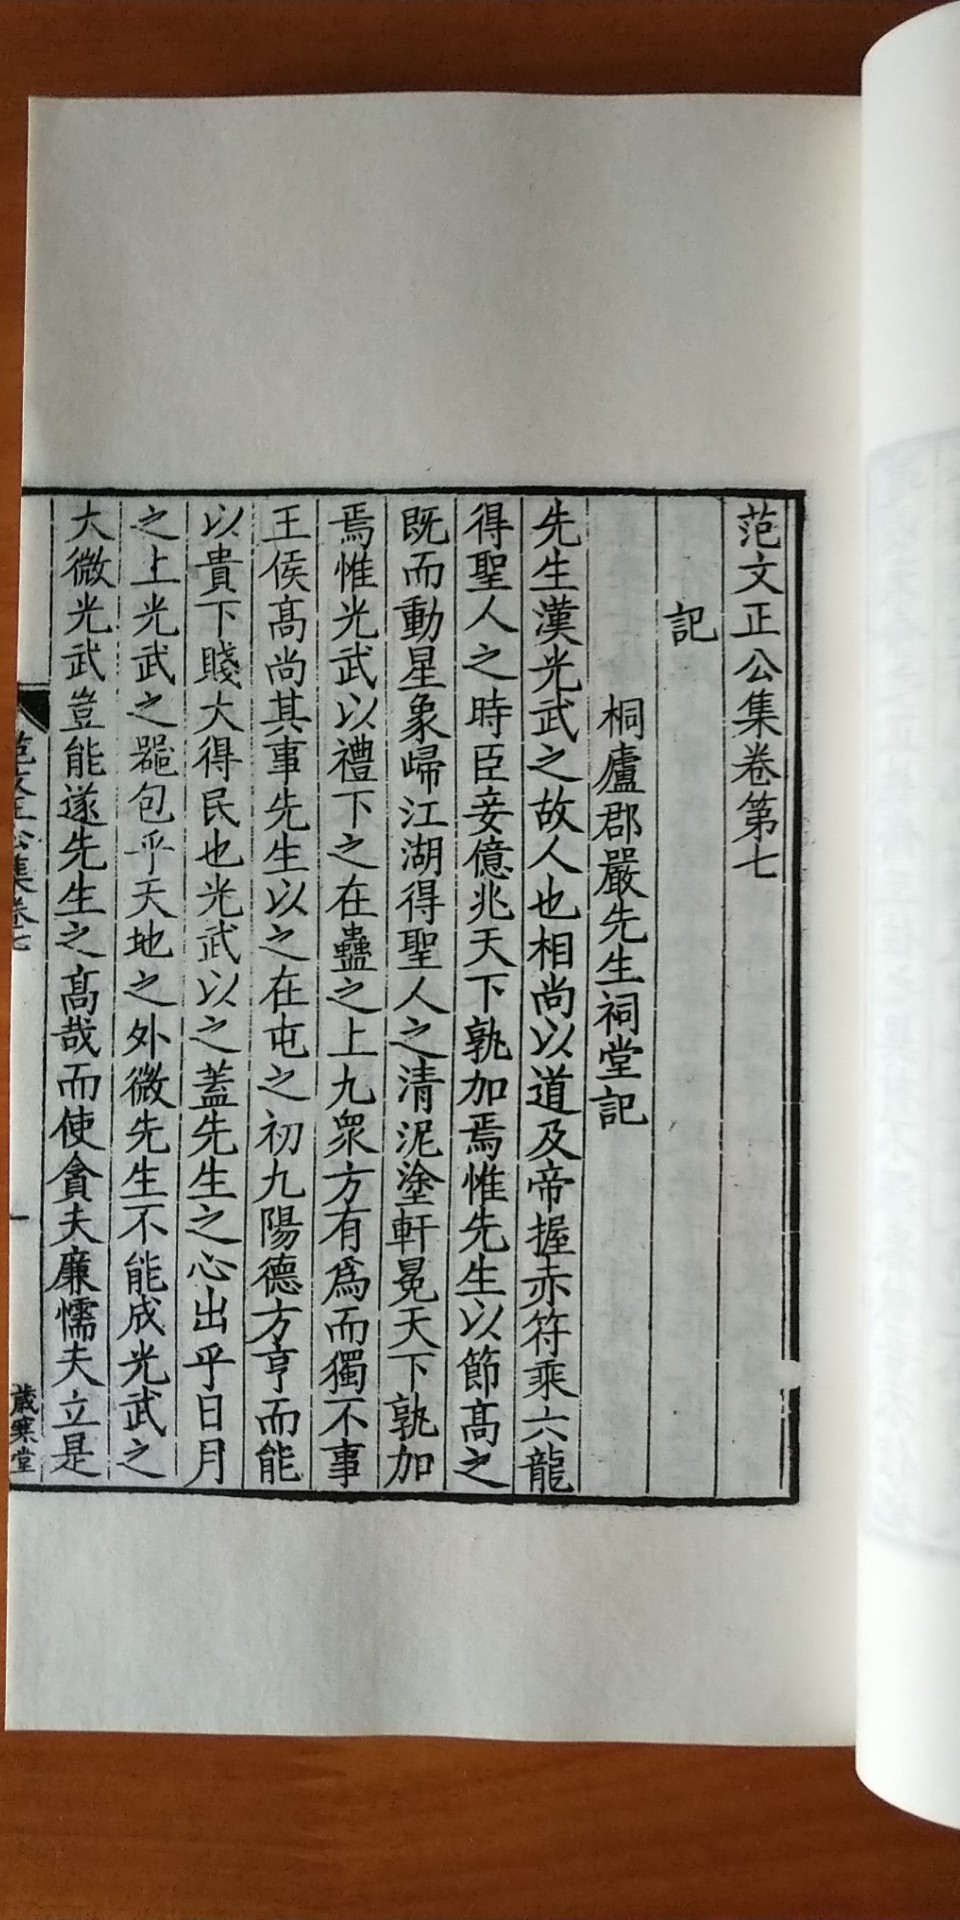 范文正公集卷第七
記
桐廬郡嚴先生祠堂記
先生漢光武之故人也相尚以道及帝握赤符乘六龍
得聖人之時臣妾億兆天下孰加焉惟先生以節髙之
既而動星象歸江湖得聖人之清泥塗軒冕天下孰加
焉惟光武以禮下之在蠱之上九衆方有爲而獨不事
王侯髙尚其事先生以之在屯之初九陽德方亨而能
以貴下賤大得民也光武以之蓋先生之心出乎日月
之上光武之器包乎天地之外微先生不能成光武之
大微光武豈能遂先生之髙哉而使貪夫廉懦夫立是
范文正公集卷七
一
歲寒堂